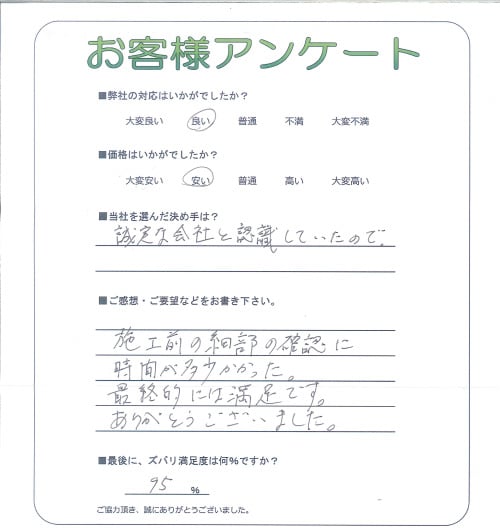 お客様アンケート
■弊社の対応はいかがでしたか?
大変良い 良い 普通 不満 大変不満
■価格はいかがでしたか?
大変安い 安い 普通 高い 大変高い
■当社を選んだ決め手は?
誠実な会社と認識していたので.
■ご感想・ご要望などをお書き下さい。
施工前の細部の確認に
時間が多少かかった。
最終的には満足です。
ありがとうございました。
■最後に、ズバリ満足度は何%ですか?
95 %
ご協力頂き、誠にありがとうございました。